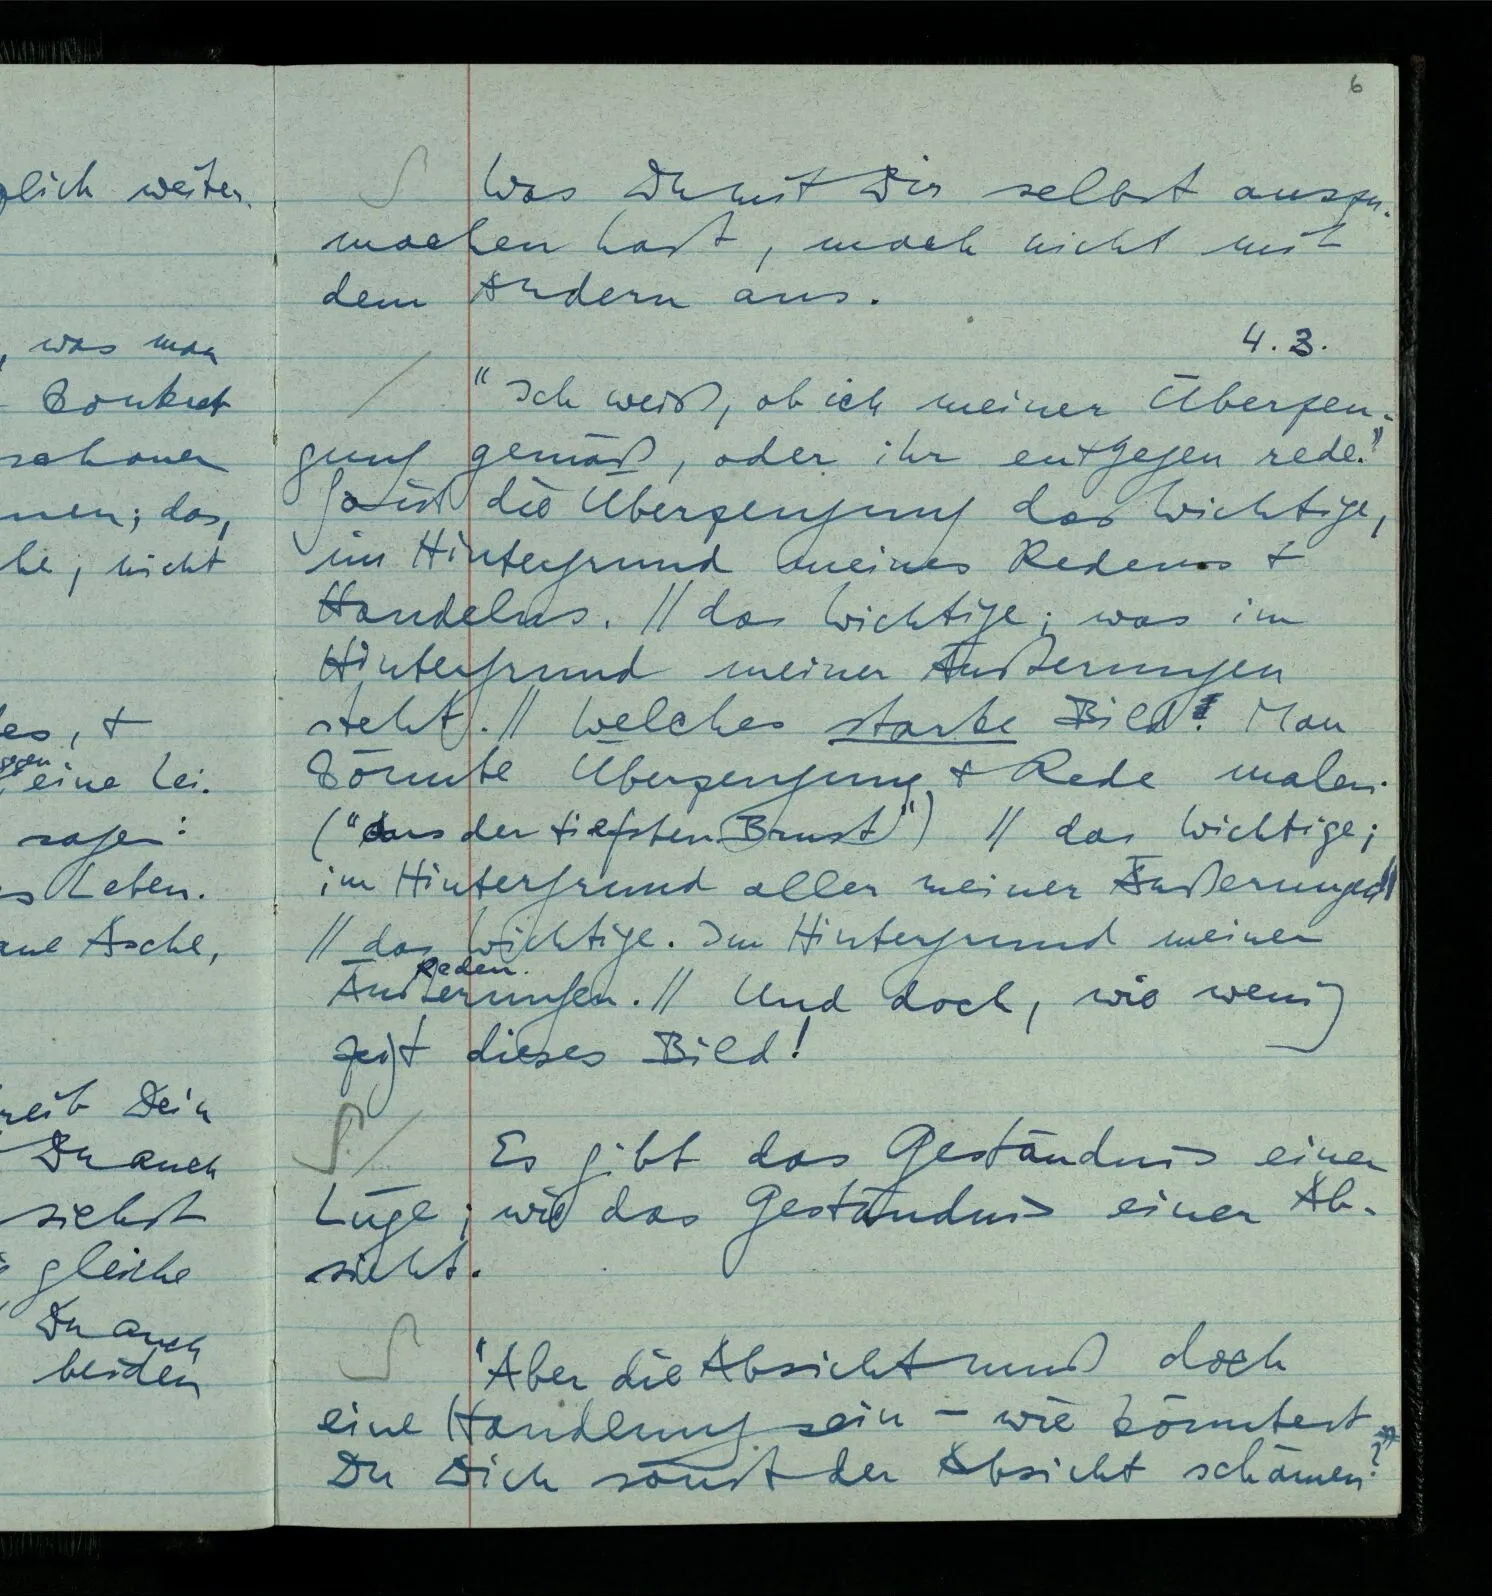 6
lich weiter.
, was man
- konkret
schauen
nen; das,
he, nicht
es, +
gegen
eine Lei-
sagen:
s Leben.
aue Asche,
reib Dein
Du auch
siehst
gleiche
Du auch
beiden
Was Du mit Dir selbst auszu-
machen hast, mach nicht mit
dem Andern aus.
4.3.
"Ich weiß, ob ich meiner Überzeu-
gung gemäß, oder ihr entgegen rede."
So ist die Überzeugung das Wichtige,
im Hintergrund meines Redens +
Handelns. // das Wichtige; was im
Hintergrund meiner Äußerungen
steht. // Welches starke Bild! Man
könnte Überzeugung + Rede malen.
("aus der tiefsten Brust") // das Wichtige;
im Hintergrund aller meiner Äußerungen //
// das Wichtige. Im Hintergrund meiner
Reden.
Äußerungen. // Und doch, wie wenig
zeigt dieses Bild!
Es gibt das Geständnis einer
Lüge; wie das Geständnis einer Ab-
sicht.
"Aber die Absicht muß doch
eine Handlung sein – wie könntest
Du Dich sonst der Absicht schämen?"